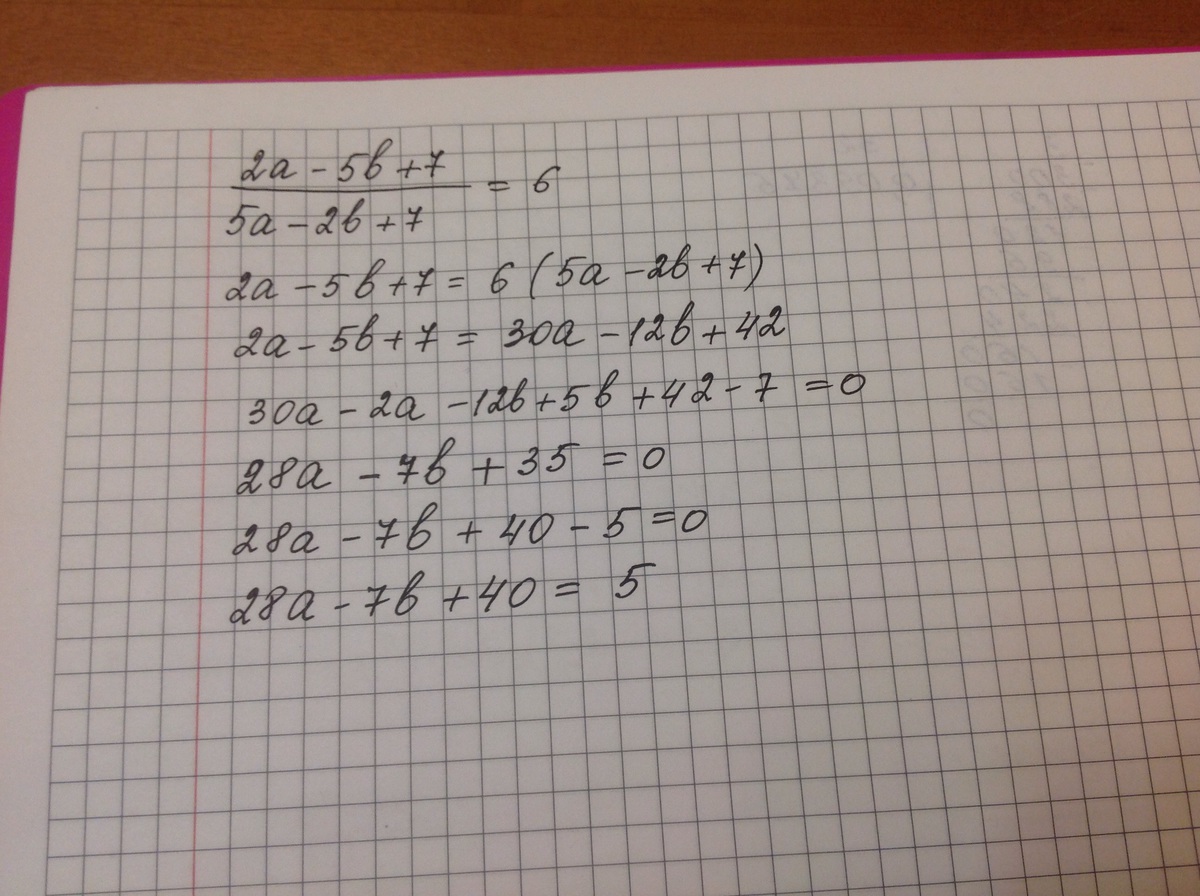 2a - 5b + 7
5a - 2b + 7 = 6
2a - 5b + 7 = 6 (5a - 2b + 7)
2a - 5b + 7 = 30a - 12b + 42
30a - 2a - 12b + 5b + 42 - 7 = 0
28a - 7b + 35 = 0
28a - 7b + 40 - 5 = 0
28a - 7b + 40 = 5